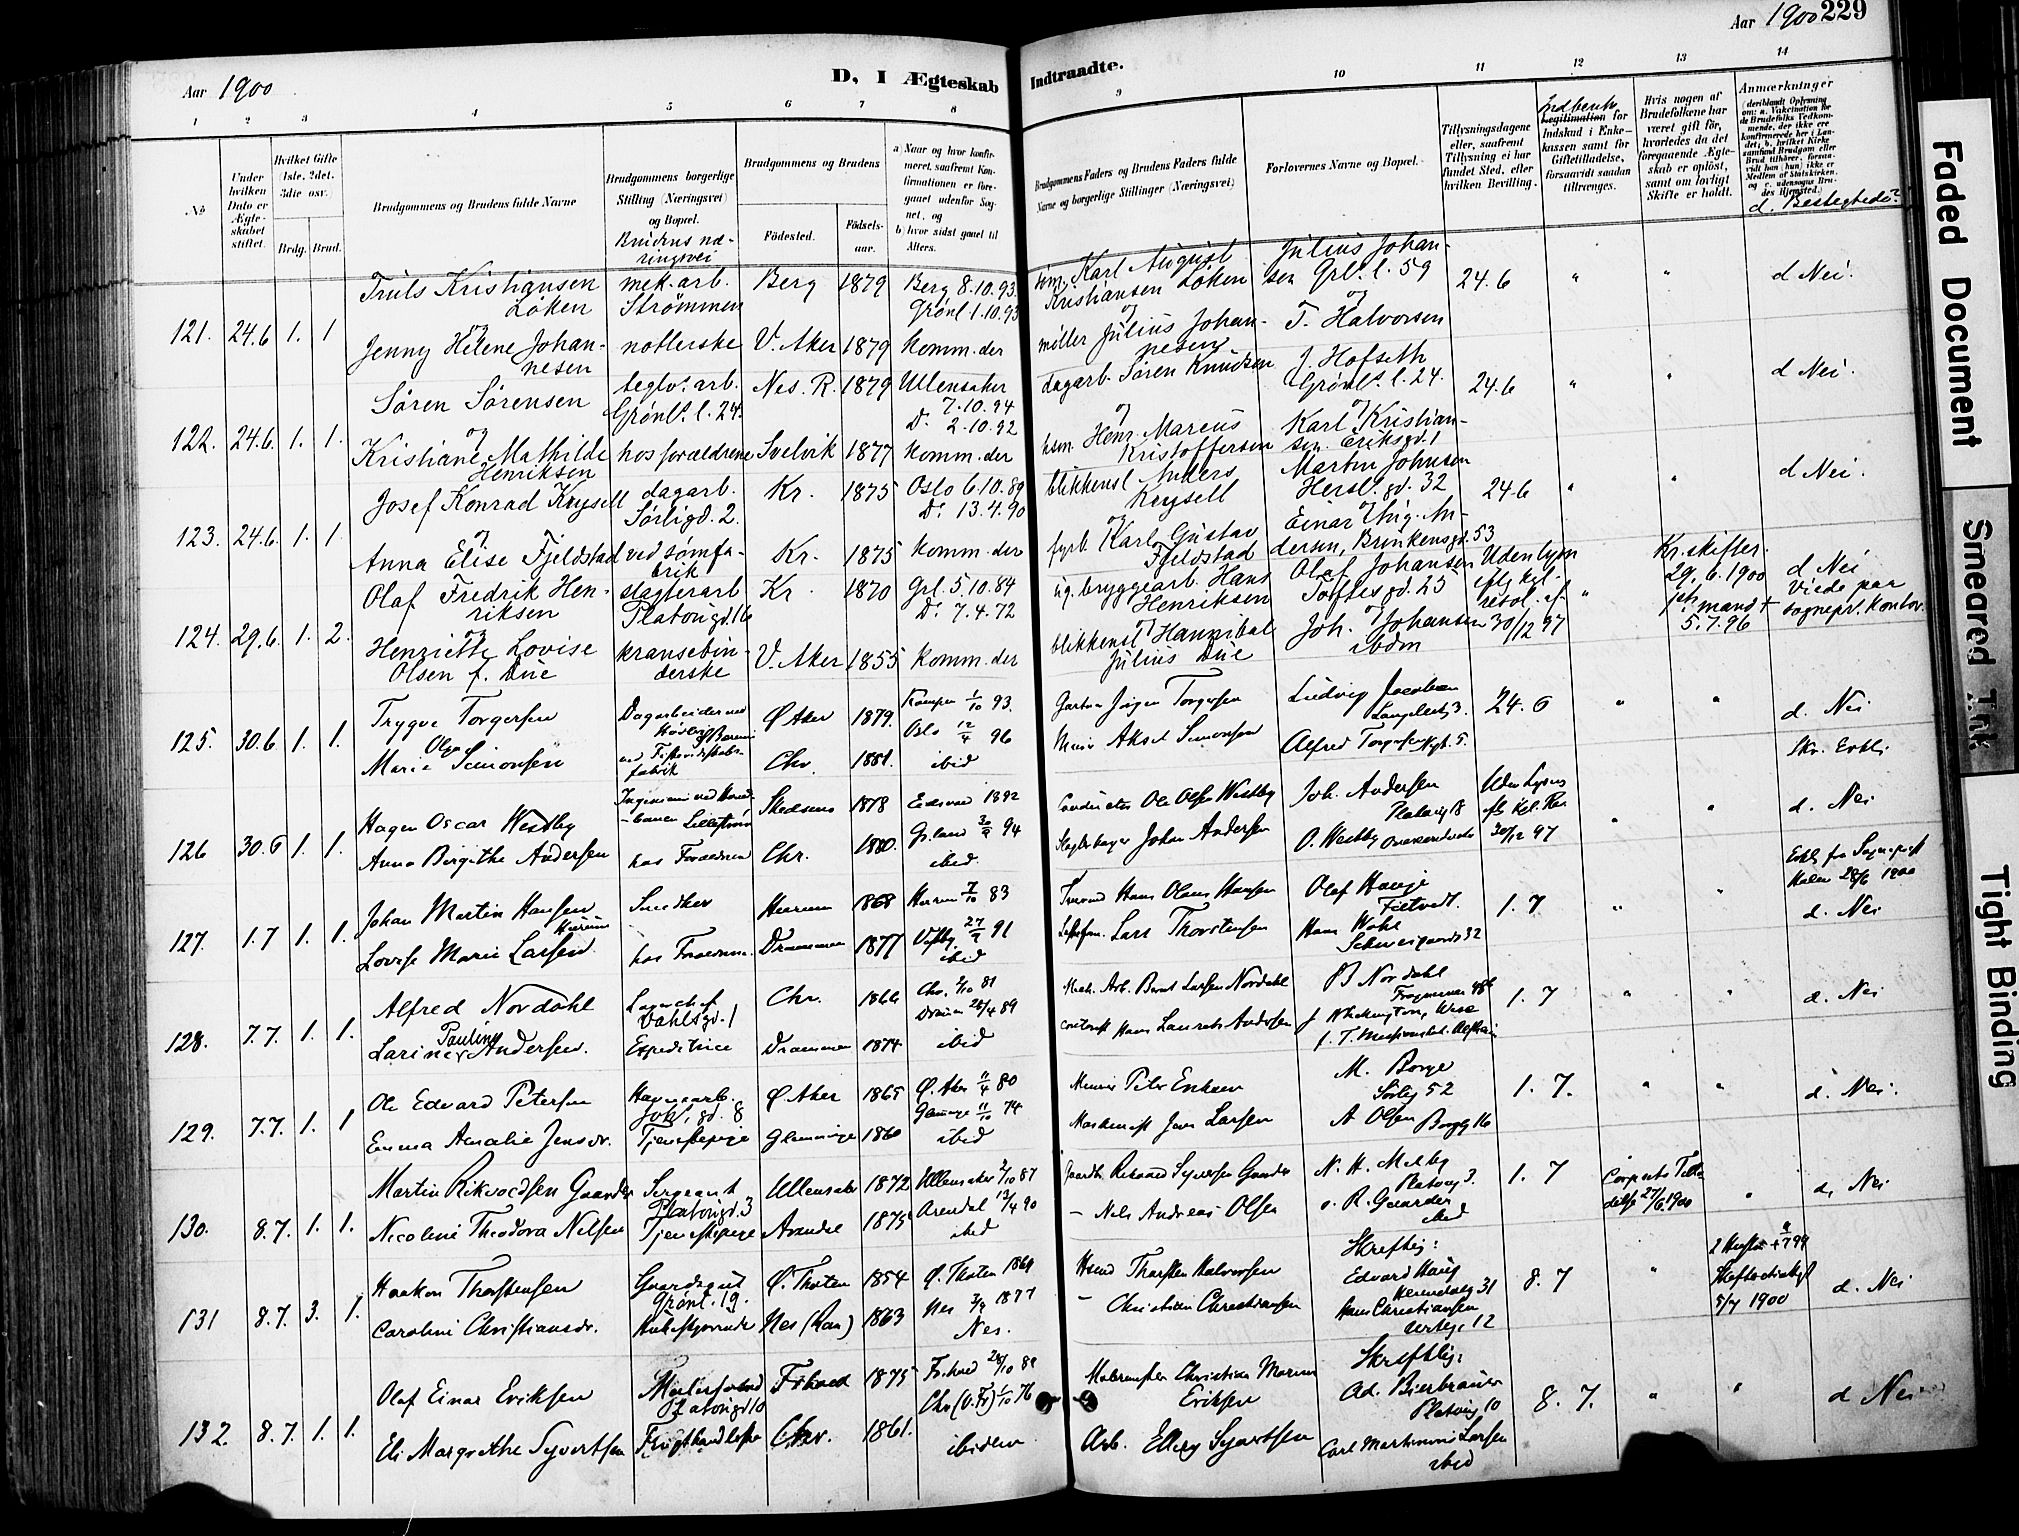 Aar 1900
D, I Ægteskab Indtraadte.
Aar 1900 229
1 2 3 4 5 6 7 8 9 10 11 12 13 14
No
Under hvilken Dato er Ægteskabet stiftet.
Hvilket Gifte (1ste, 2det, 3die osv.)
Brdg. Brud.
Brudgommens og Brudens fulde Navne
Brudgommens borgerlige Stilling (Næringsvei) og Bopæl.
Brudens næringsvei
Brudgommens og Brudens
Födested. Födselsaar.
a Naar og hvor konfirmeret, saafremt Konfirmationen er foregaaet udenfor Sognet, og
b hvor sidst gaaet til Alters.
Brudgommens Faders og Brudens Faders fulde Navne og borgerlige Stillinger (Næringsvei)
Forlovernes Navne og Bopæl.
Tillysningsdagene eller, saafremt Tillysning ei har fundet Sted, efter hvilken Bevilling.
Legitimation for Indskud i Enkekassen samt for Giftetilladelse, forsaavidt saadan tiltrænges.
Hvis nogen af Brudefolkene har været gift för, hvorledes da det foregaaende Ægteskab er oplöst, samt om lovligt Skifte er holdt.
Anmærkninger
d. Beslegtede?
121. 24.6 1. 1
Truls Kristiansen Løken mek. arb. Strömmen Berg 1879 Berg 8.10.93. Grönl 1.10.93 Karl August Kristiansen Löken Julius Johansen Grl. l. 59 24.6 " " d Nei.
og
Jenny Helene Johannesen notlerske V. Aker 1879 komm. der möller Julius Johannesen T. Halvorsen
122. 24.6. 1. 1.
Sören Sörensen teglv. arb. Grönl. l. 24. Nes. R. 1879 Ullensaker 7.10.94 Do 2.10.92 dagarb. Sören Knudsen J. Hofseth Grönl. l. 24. 24.6 " " d Nei.
og
Kristiane Mathilde Henriksen hos forældrene Svelvik 1877 komm. der hsm. Henr. Marcus Kristoffersen Karl Kristiansen. Eriksgd. 1
123. 24.6. 1. 1.
Josef Konrad Krysell dagarb. Sörligd. 2. Kr. 1875 Oslo 6.10.89 Do 13.4.90 blikkensl Anders Krysell Martin Johnsen Hersl. gd. 32 24.6 " " d Nei.
og
Anna Elise Fjeldstad ved sömfabrik Kr. 1875 komm. der fyrb. Karl Gustav Fjeldstad Einar Thig. Andersen, Brinkensgd. 53
124. 29.6. 1. 2.
Olaf Fredrik Henriksen slagterarb Platousgd. 16 Kr. 1870 Grl. 5.10.84 Do. 7.4.72 ug. bryggearb. Hans Henriksen Olaf Johansen Toftesgd. 25 Uden lysn eflg kgl. resol. af 30/12 97 " Kr. skifter. 29.6.1900 1ste mand + 5.7.96 d Nei Viede paa sognepr. kontor.
og
Henriette Lovise Olsen f. Due kransebinderske V. Aker 1855 komm. der blikkensl Hannibal Julius Due Joh. Johansen ibdm
125. 30.6 1. 1.
Trygve Torgersen Dagarbeider ved Ø Aker 1879. Kampen 1/10 93. Oslo 12/4 96 Jörgen Torgersen Ludvig Jacobsen 3. 24.6 " " d. Nei
Olga Marie Simonsen ved Chr. 1881. ibid Murer Aksel Simonsen Alfred Torgersen 5.
126 30.6 1. 1.
Hagen Oscar Westby Skedsmo 1878 Eidsvold 1892 Conductør Ole Olsen Westby Joh. Andersen Platousg 18 Uden Lysn. eft. kgl. Res 30/12 97 " " d. Nei
Anna Birgithe Andersen hos Forældrene Chr. 1880. Grönland 30/9 94 ibid. Johan Andersen O. Westby
127. 1.7 1. 1.
Johan Martin Hansen Hurum Snedker Hurum 1868 Hurum 7/10 83 Hans Olaus Hansen Olaf Hauge Filtvedt. 1. 7 " " d. Nei
Lovise Marie Larsen hos Forældrene Drammen 1877 Vestby 27/9 91 ibid Lars Thorstensen Hans Wahl Schweigaards 32
128. 7.7. 1. 1.
Alfred Nordahl Lagerchef Vahlsgd. 1 Chr. 1866 Chr. 2/10 81 Drammen 28/4 89 Mek. Arb. Bernt Larsen Nordahl B Nordahl 1. 7 " " d. Nei
Larine Pauline Andersen. Expeditrice Drammen 1874 ibid Hans Laurits Andersen
129. 7.7. 1. 1
Ole Edvard Petersen Havnearb. gd. 8 Ø. Aker 1865 Ø. Aker 11/4 80 Glemminge 11/10 74 Murer Peter Eriksen M. Borge Sorlig 52 1. 7. " " d. Nei.
Emma Amalie Jensdr. Tjenestepige Glemminge 1860 ibid Jens Larsen A Olsen Borgg 16
130. 8.7. 1. 1.
Martin Rikvoldsen Gaarder Sergeant Platousgd. 3 Ullensaker 1872 Ullensaker 2/10 87 Arendal 13/4 90 Gaardbr. Rikvold Syversen Gaarder N. H. Melby Platousg 3. 1. 7 Corpsets Tilladelse 27/6 1900 " d. Nei
Nicoline Theodora Nilsen Tjenestepige Arendal 1875 ibid – Nils Andreas Olsen R. Gaarder ibid
131 8.7. 3. 1.
Haakon Thorstensen Gaardsgut Grönl. 19. Ø. Thoten 1854 Ø. Thoten 1869 Nes 1877 Husmd Thorsten Halvorsen Skriftlig: Edvard Haug 31 8. 7 " 2 Hustru + 4/7 99 Skifteattest 5/7 1900 d. Nei
Caroline Christiansdr. Nes (Rom) 1863 Nes. – Christian Christiansen Hans Christiansen 12
132. 8.7. 1. 1.
Olaf Einar Eriksen Malersvend Platousgd 10 1875 28/10 89 Chr (V. Fr) 1/10 76 Malermester Christian Eriksen Skriftlig: Ad. Bierbrauer Platousg 10 8. 7. " " d Nei
Eli Margrethe Syvertsen Frugthandlerske Chr. 1861. ibidem Arb. Ellerg Syvertsen Carl Martinius Larsen ibid
Faded Document
Smeared Ink
Tight Binding